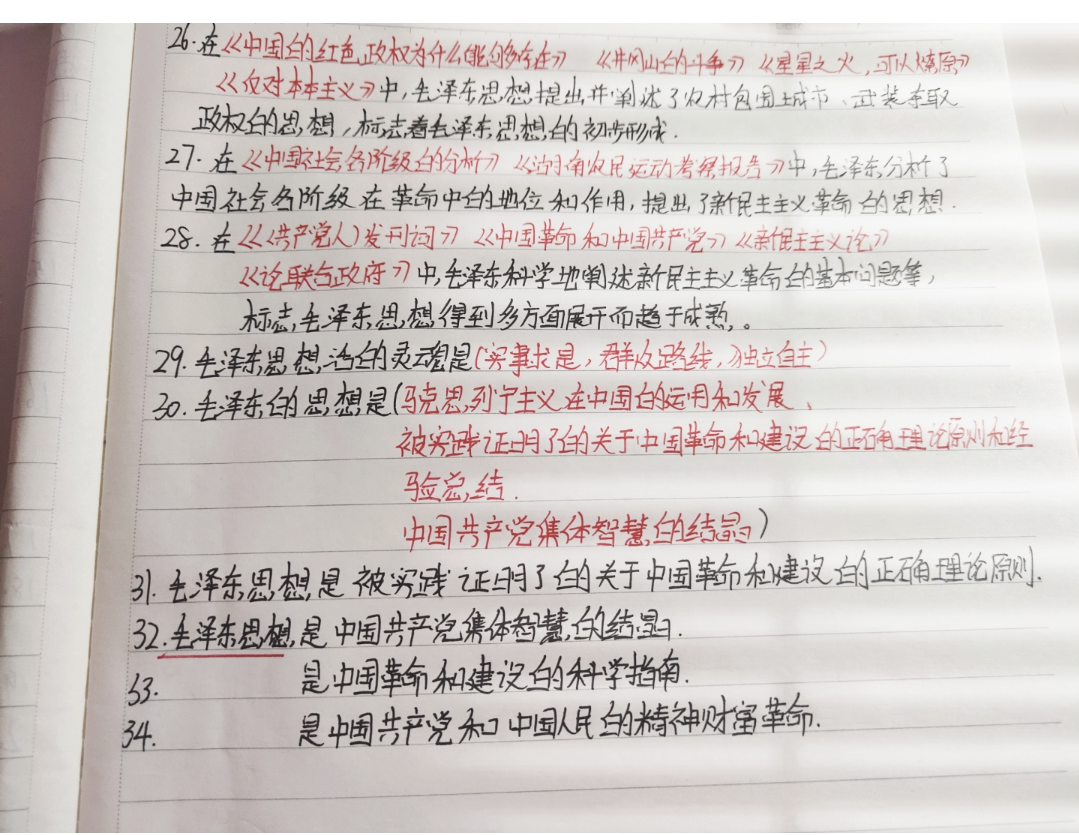 26.在《中国的红色政权为什么能够存在》《井冈山的斗争》《星星之火，可以燎原》
《反对本本主义》中，毛泽东思想提出并阐述了农村包围城市、武装夺取
政权的思想，标志着毛泽东思想的初步形成.
27.在《中国社会各阶级的分析》《湖南农民运动考察报告》中，毛泽东分析了
中国社会各阶级在革命中的地位和作用，提出了新民主主义革命的思想.
28.在《〈共产党人〉发刊词》《中国革命和中国共产党》《新民主主义论》
《论联合政府》中，毛泽东科学地阐述新民主主义革命的基本问题等，
标志毛泽东思想得到多方面展开而趋于成熟。
29.毛泽东思想活的灵魂是(实事求是，群众路线，独立自主)
30.毛泽东的思想是(马克思列宁主义在中国的运用和发展、
被实践证明了的关于中国革命和建设的正确理论原则和经
验总结.
中国共产党集体智慧的结晶)
31.毛泽东思想是被实践证明了的关于中国革命和建设的正确理论原则.
32.毛泽东思想是中国共产党集体智慧的结晶.
33. 是中国革命和建设的科学指南.
34. 是中国共产党和中国人民的精神财富革命.